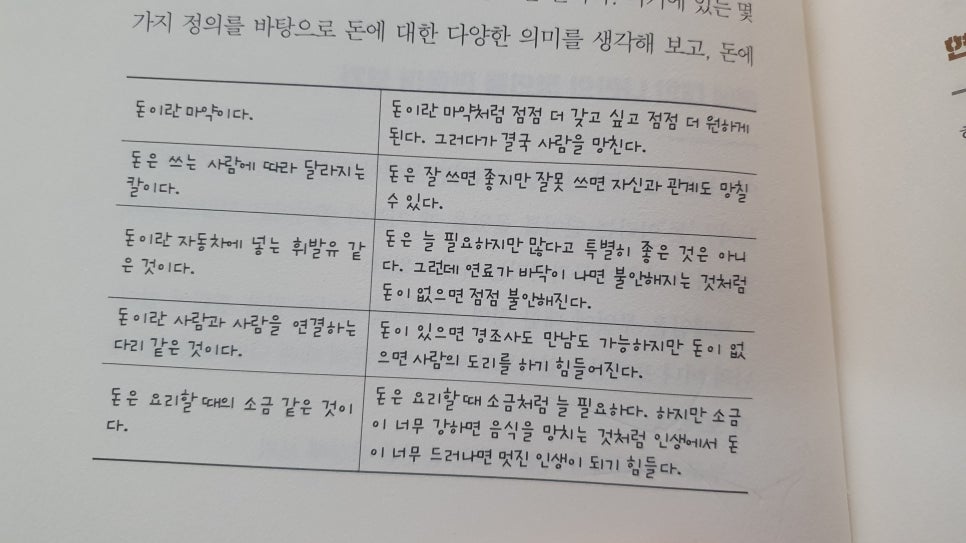 있는 몇
가지 정의를 바탕으로 돈에 대한 다양한 의미를 생각해 보고, 돈에
돈이란 마약이다.
돈이란 마약처럼 점점 더 갖고 싶고 점점 더 원하게
된다. 그러다가 결국 사람을 망친다.
돈은 쓰는 사람에 따라 달라지는
칼이다.
돈은 잘 쓰면 좋지만 잘못 쓰면 자신과 관계도 망칠
수 있다.
돈이란 자동차에 넣는 휘발유 같
은 것이다.
돈은 늘 필요하지만 많다고 특별히 좋은 것은 아니
다. 그런데 연료가 바닥이 나면 불안해지는 것처럼
돈이 없으면 점점 불안해진다.
돈이란 사람과 사람을 연결하는
다리 같은 것이다.
돈이 있으면 경조사도 만남도 가능하지만 돈이 없
으면 사람의 도리를 하기 힘들어진다.
돈은 요리할 때의 소금 같은 것이
다.
돈은 요리할 때 소금처럼 늘 필요하다. 하지만 소금
이 너무 강하면 음식을 망치는 것처럼 인생에서 돈
이 너무 드러나면 멋진 인생이 되기 힘들다.